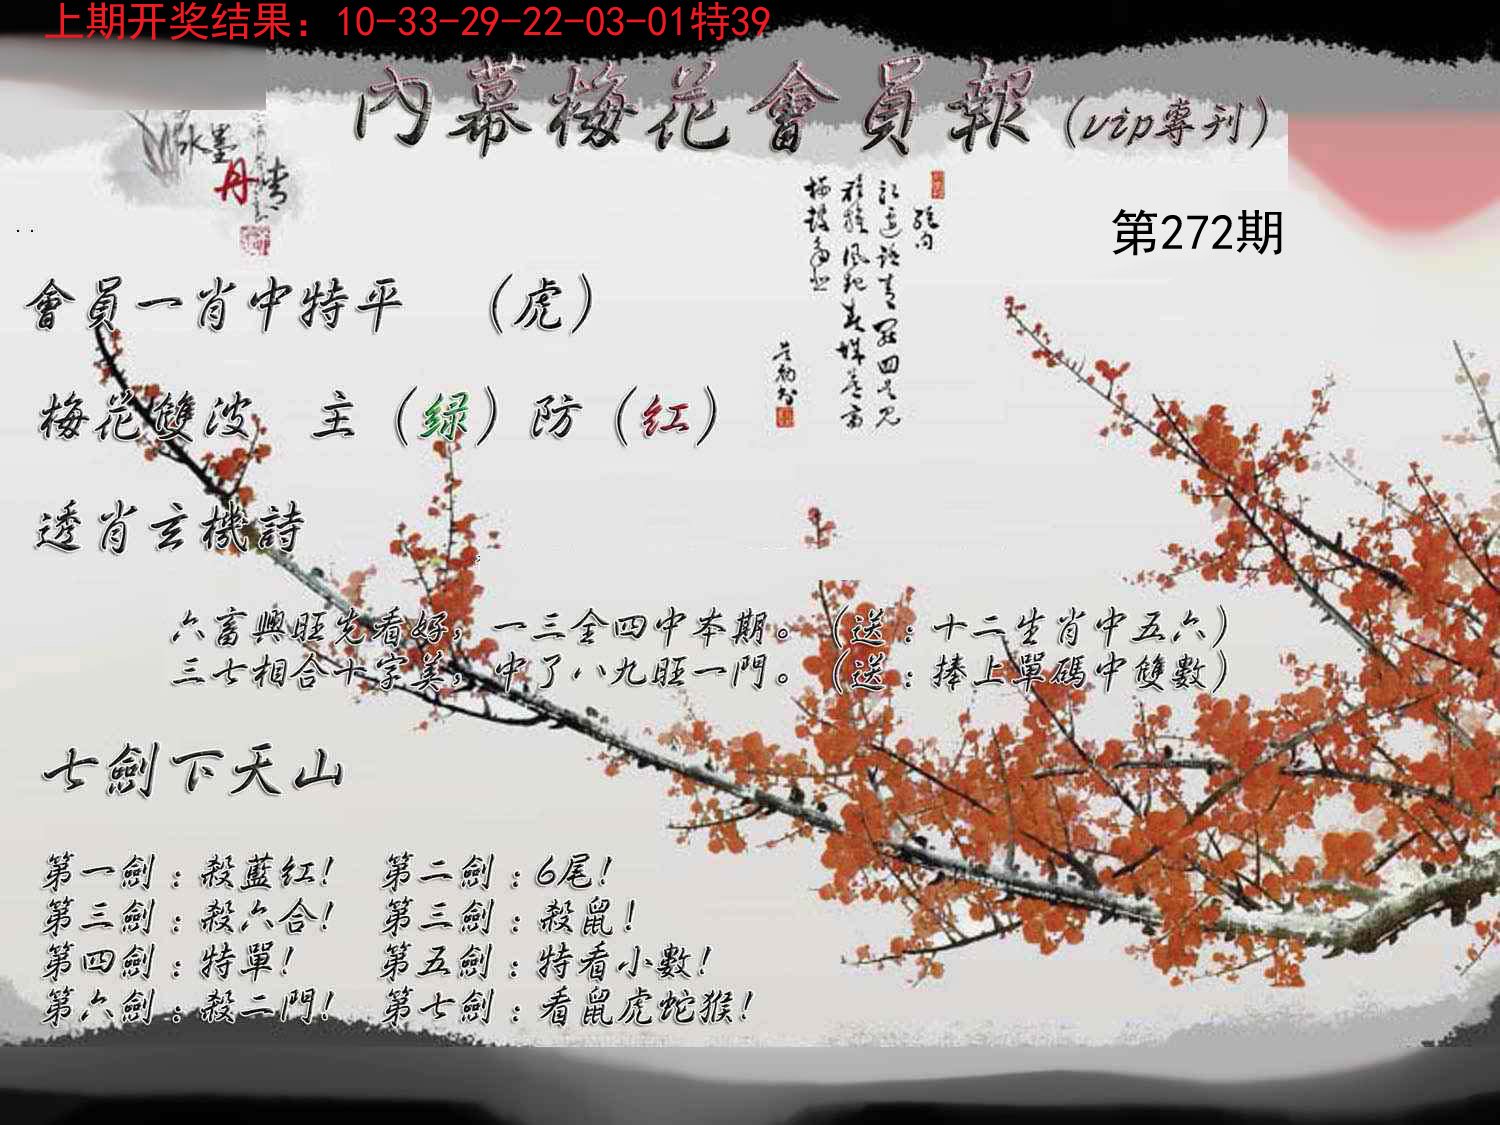 上期开奖结果：10-33-29-22-03-01特39
內幕梅花會員報（vip專刊）
水墨
丹
情
第272期
會員一肖中特平　（虎）
梅花雙波　主（绿）防（红）
透肖玄機詩
六畜興旺先看好，一三全四中本期。（送：十二生肖中五六）
三七相合十字美，中了八九旺一門。（送：捧上單碼中雙數）
七劍下天山
第一劍：殺藍红！　第二劍：6尾！
第三劍：殺六合！　第三劍：殺鼠！
第四劍：特單！　第五劍：特看小數！
第六劍：殺二門！　第七劍：看鼠虎蛇猴！